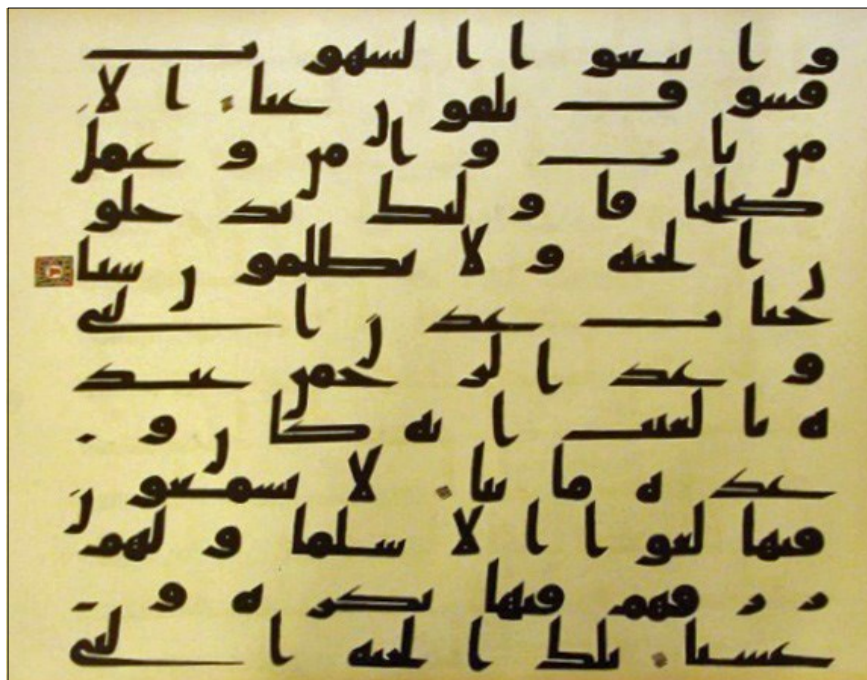 واتبعوا الشهوت
فسوف يلقون غيا الا
من تاب وامن وعمل
صلحا فاولئك يدخلو
ن الجنة ولا يظلمون شيا
جنت عدن التي
وعد الرحمن عبد
ه بالغيب انه كان و
عده ماتيا لا يسمعون
فيها لغوا الا سلما ولهم
رزقهم فيها بكرة و
عشيا تلك الجنة التي